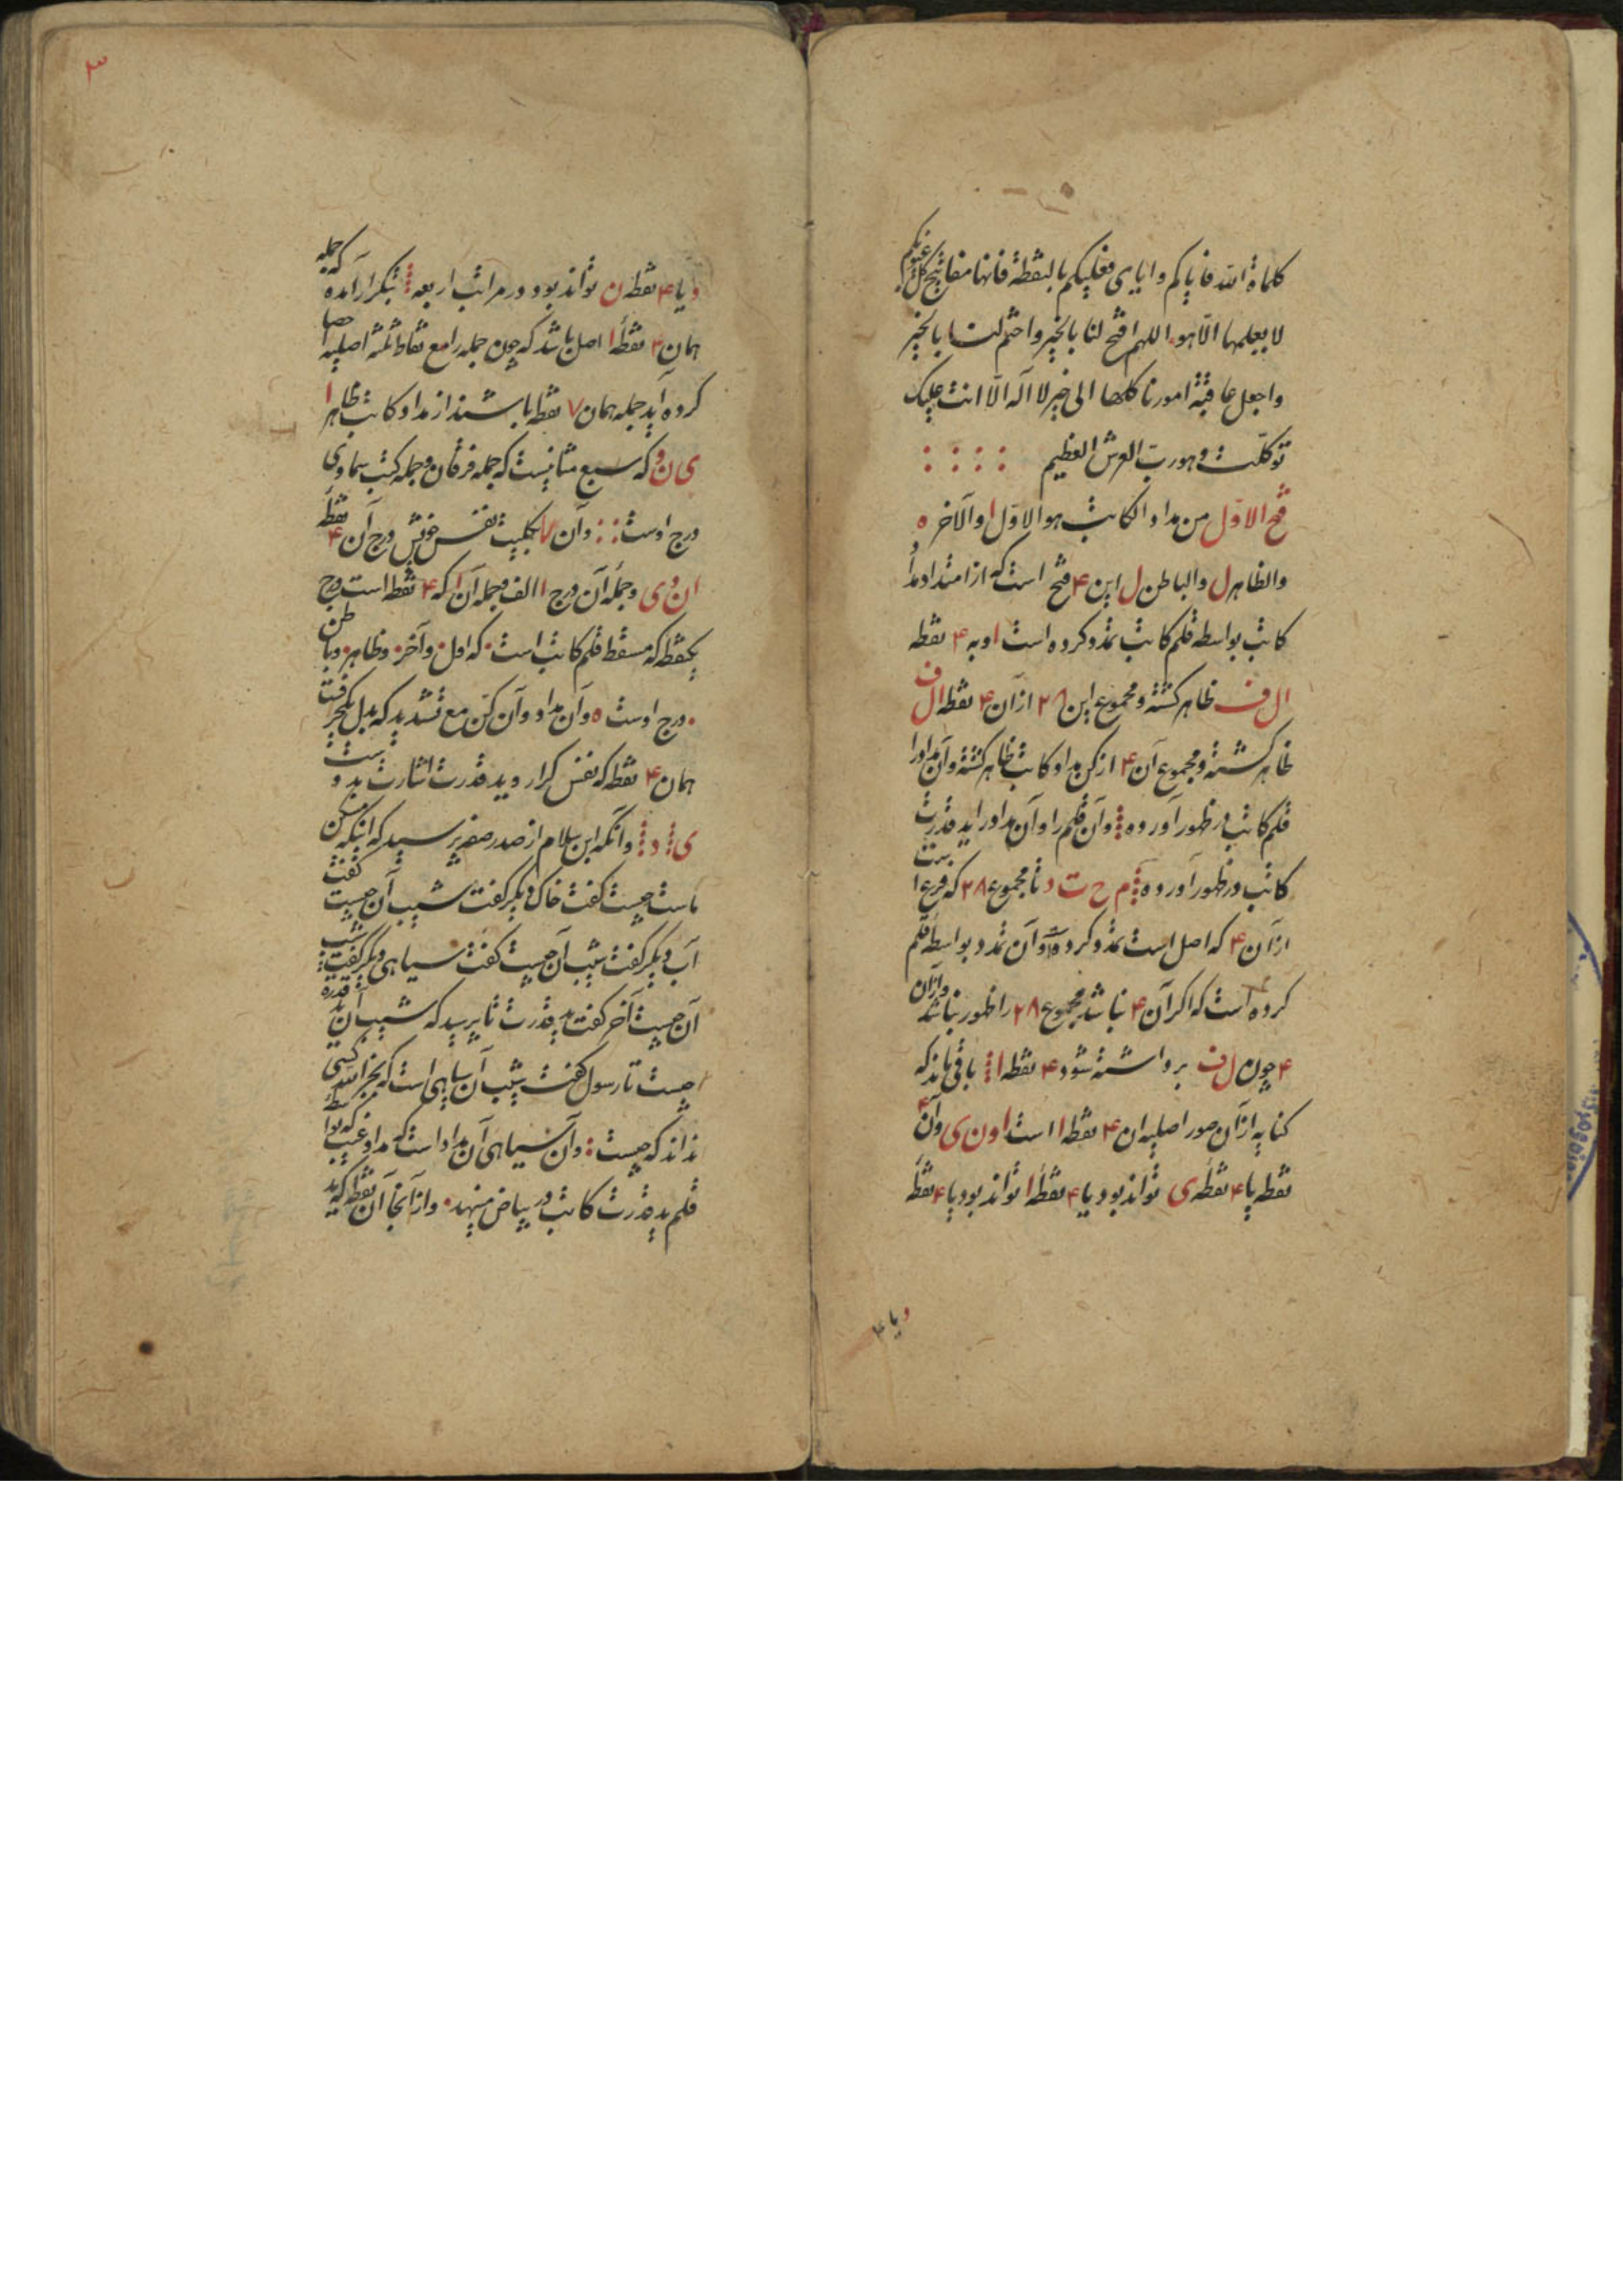 کلماة الله فایاکم وایای فعلیکم بالنقطة فانها مفاتیح کل غیوبکم
لا یعلمها الّا هو اللهم افتح لنا بالخیر واختم لنا بالخیر
واجعل عاقبة امورنا کلها الی خیر لا آله الّا انت علیک
توکلت وهو ربّ العرش العظیم
فتح الاوّل من مداد الکاتب هو الاوّل ا والآخر ه
والظاهر ل والباطن ل این ۴ فتح است که از امتداد مداد
کاتب بواسطه قلم کاتب تمدد کرده است او به ۴ نقطه
ال ف ظاهر کشته ومجموع این ۲۸ از آن ۴ نقطه ال ف
ظاهر کشته ومجموع آن ۴ از کن مداد کاتب ظاهر کشته وآن مداد را
قلم کاتب در ظهور آورده وآن قلم را وآن مداد را ید قدرت
کاتب در ظهور آورده م ح ت د تا مجموع ۲۸ که فرع
از آن ۴ که اصل است تمدد کرده وآن تمدد بواسطه قلم
کرده است که اکر آن ۴ نباشد مجموع ۲۸ را ظهور نباشد واز آن
۴ چون ل ف برداشته شود ۴ نقطه ا باقی ماند که
کنایه از آن صور اصلیه ان ۴ نقطه ا است ا و ن ی وآن ۴
نقطه یا ۴ نقطهٔ ی تواند بود یا ۴ نقطهٔ ا تواند بود یا ۴ نقطهٔ
و یا ۴
۳
و یا ۴ نقطه ن تواند بود ودر مراتب اربعه بتکرار آمده که جمله
همان ۳ نقطهٔ ا اصل باشد که چون جمله را مع نقاط ثلثه اصلیه احصا
کرده آید جمله همان ۷ نقطه باشند از مداد کاتب ظاهر ا
ی ن و که سبع مثانیست که جمله فرقان وجمله کتب سماوی
درج اوست وآن ۷ بکلیت نفس خویش درج آن ۴ نقطه
ا ن و ی وجمله آن درج ا الف وجمله آن ا که ۴ نقطه است درج
یکنقطه که مسقط قلم کاتب است که اول وآخر وظاهر وباطن
درج اوست ه وآن مداد وآن کنّ مع تشدید که بدل یکجز رفت
همان ۴ نقطه که نفس کرار وید قدرت اشارت بدوست
ی د وآنکه ابن سلام از صدر صفه پرسید که اینکه مسکن
ماست چیست کفت خاک دیکر کفت شیب آن چیست کفت
آب دیکر کفت شیب آن چیست کفت سیاهی دیکر کفت شیب
آن چیست آخر کفت ید قدرت تا پرسید که شیب آن ید قدرة
چیست تا رسول کفت شیب آن سیاهی است که بجز الله کسی
نداند که چیست وآن سیاهی آن مداد است که مداد غیب که بواسطه
قلم ید قدرت کاتب در بیاض مینهد واز آنجا آن نقطه که ید